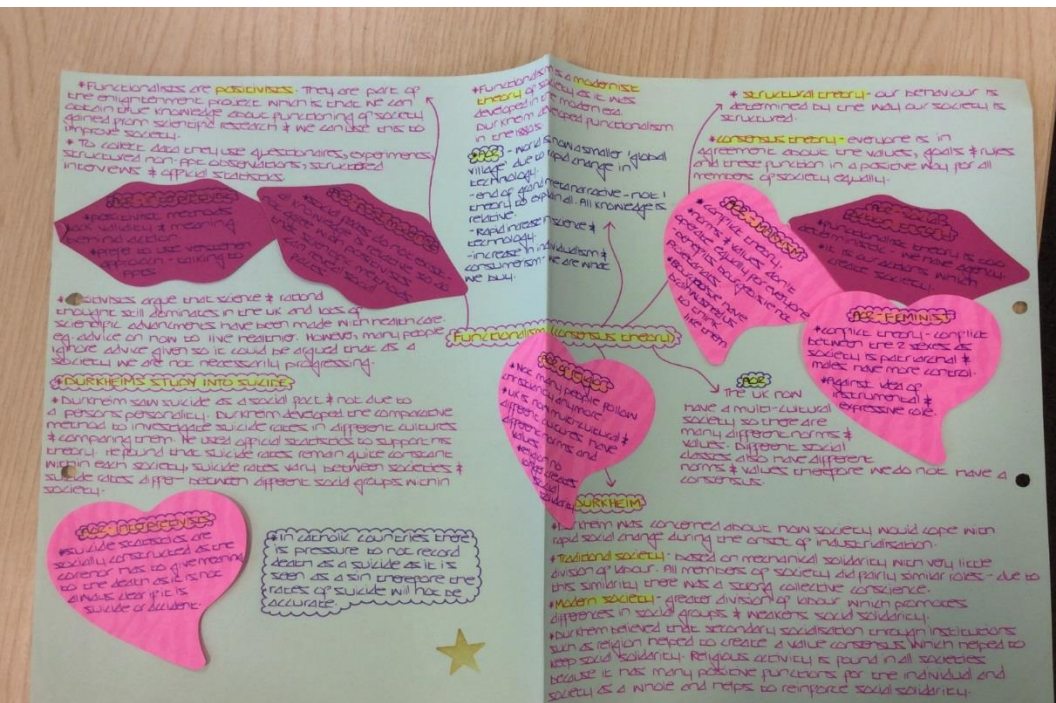 *Functionalists are positivists. They are part of
the enlightenment project which is that we can
obtain true knowledge about functioning of society
gained from scientific research & we can use this to
improve society.
*To collect data they use questionaires, experiments,
structured non-ppt observations, structured
interviews & official statistics.
*positivist methods
lack validity & meaning
behind action
*prefer to use verstehen
approach - talking to
ppts
*social facts do not exist
argue that science & rational
thought still dominates in the UK and lots of
scientific advancments have been made with health care
eg. advice on how to live healthier. However, many people
ignore advice given so it could be argued that as a
society we are not necessarily progressing.
*DURKHEIMS STUDY INTO SUICIDE
*Durkheim saw suicide as a social fact & not due to
a persons personality. Durkheim developed the comparative
method to investigate suicide rates in different cultures
& comparing them. He used official statistics to support his
theory. He found that suicide rates remain quite constant
within each society, suicide rates vary between societies &
suicide rates differ between different social groups within
society.
*suicide statistics are
socially constructed as the
coroner has to give meaning
to the death as it is not
always clear if it is
suicide or accident.
*In catholic countries there
is pressure to not record
death as a suicide as it is
seen as a sin therefore the
rates of suicide will not be
accurate.
*Functionalism is a modernist
theory of society as it was
developed in the modern era.
Durkheim developed functionalism
in the
- World is now a smaller 'global
village' due to rapid change in
technology.
- end of grand metanarrative - not 1
theory to explain all. All knowledge is
relative.
- Rapid increase in science &
technology.
- increase in individualism &
consumerism - we are what
we buy.
Functionalism (consensus theory)
*Not many people follow
christianity anymore
*UK is now multi-cultural &
different cultures have
different norms and
values
*religion no
longer creates
social
solidarity
*structural theory - our behaviour is
determined by the way our society is
structured.
*consensus theory - everyone is in
agreement about the values, goals & rules
and these function in a positive way for all
members of society equally.
*conflict theory,
norms & values don't
operate equally for everyone
benefits bourgeoisie not
proletariats
*Bourgeoisie have
brainwashed us
to think
like them
*Functionalist theory too
deterministic - we have agency.
*It is our actions which
create society.
AO2 - FEMINIST
*conflict theory - conflict
between the 2 sexes as
society is patriarchal &
males have more control.
*Against idea of
instrumental &
expressive role.
AO2
The UK now
have a multi-cultural
society so there are
many different norms &
values. Different social
classes also have different
norms & values therefore we do not have a
consensus.
DURKHEIM
*Durkheim was concerned about how society would cope with
rapid social change during the onset of industrialisation.
*Traditional society - based on mechanical solidarity with very little
division of labour. All members of society did fairly similar roles - due to
this similarity there was a strong collective conscience.
*Modern society - greater division of labour which promotes
differences in social groups & weakens social solidarity.
*Durkheim believed that secondary socialisation through institutions
such as religion helped to create a value consensus which helped to
keep social solidarity. Religious activity is found in all societies
because it has many positive functions for the individual and
society as a whole and helps to reinforce social solidarity.